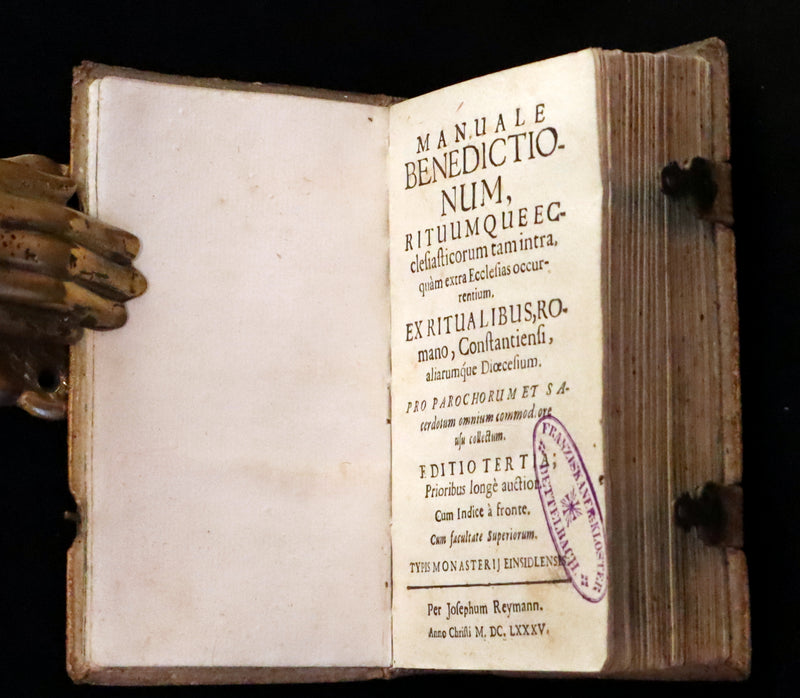 MANUALE
BENEDICTIO-
NUM,
RITUUMQUE EC-
cleſiaſticorum tam intra,
quàm extra Eccleſias occur-
rentium,
EX RITUALIBUS, RO-
mano, Conſtantienſi,
aliarumq́ue Diœceſium.
PRO PAROCHORUM ET SA-
cerdotum omnium commod.ore
uſu collectum.
EDITIO TERTIA;
Prioribus longè auctior.
Cum Indice à fronte.
Cum facultate Superiorum.
TYPIS MONASTERIJ EINSIDLENSIS
Per Joſephum Reymann.
Anno Chriſti M. DC. LXXXV.
FRANZISKANERKLOSTER
DETTELBACH